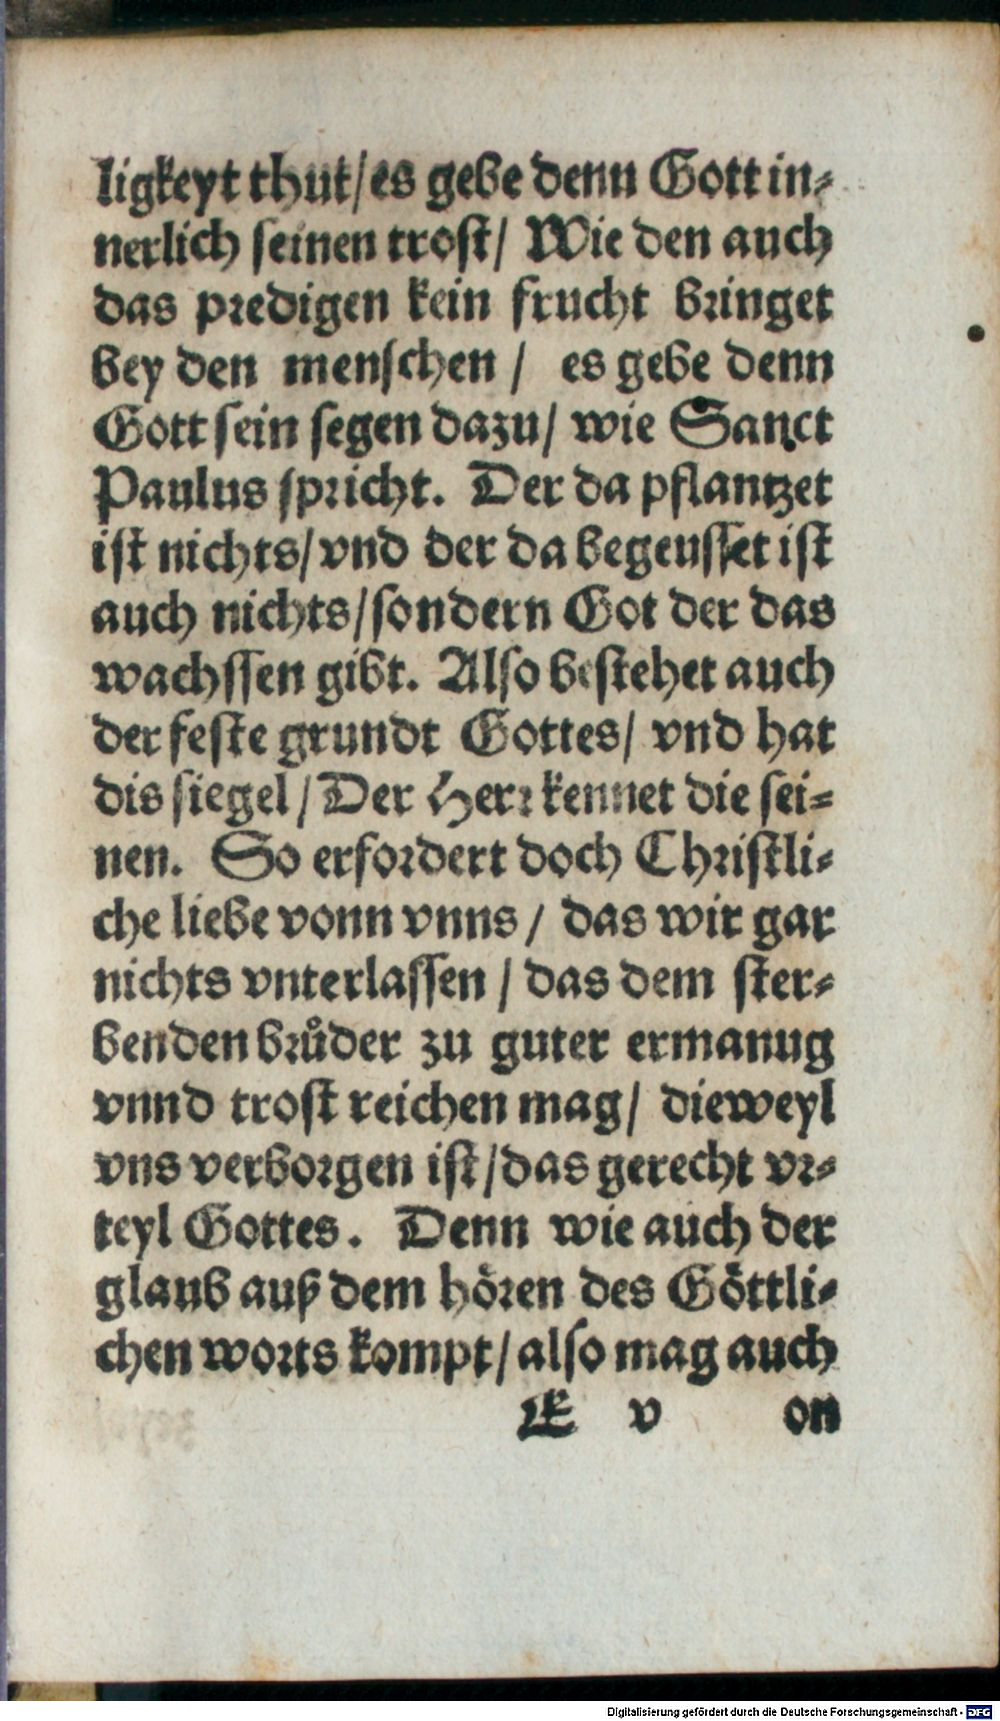 ligkeyt thut/es gebe denn Gott in-
nerlich seinen trost/ Wie den auch
das predigen kein frucht bringet
bey den menschen / es gebe denn
Gott sein segen dazu/ wie Sanct
Paulus spricht. Der da pflantzet
ist nichts/vnd der da begeusset ist
auch nichts/sondern Got der das
wachssen gibt. Also bestehet auch
der feste grundt Gottes/ vnd hat
dis siegel /Der Herr kennet die sei-
nen. So erfordert doch Christli-
che liebe vonn vnns / das wir gar
nichts vnterlassen / das dem ster-
benden brůder zu guter ermanug
vnnd trost reichen mag/ dieweyl
vns verborgen ist/das gerecht vr-
teyl Gottes. Denn wie auch der
glaub auß dem hören des Göttli-
chen worts kompt/also mag auch
K v on
Digitalisierung gefördert durch die Deutsche Forschungsgemeinschaft - DFG